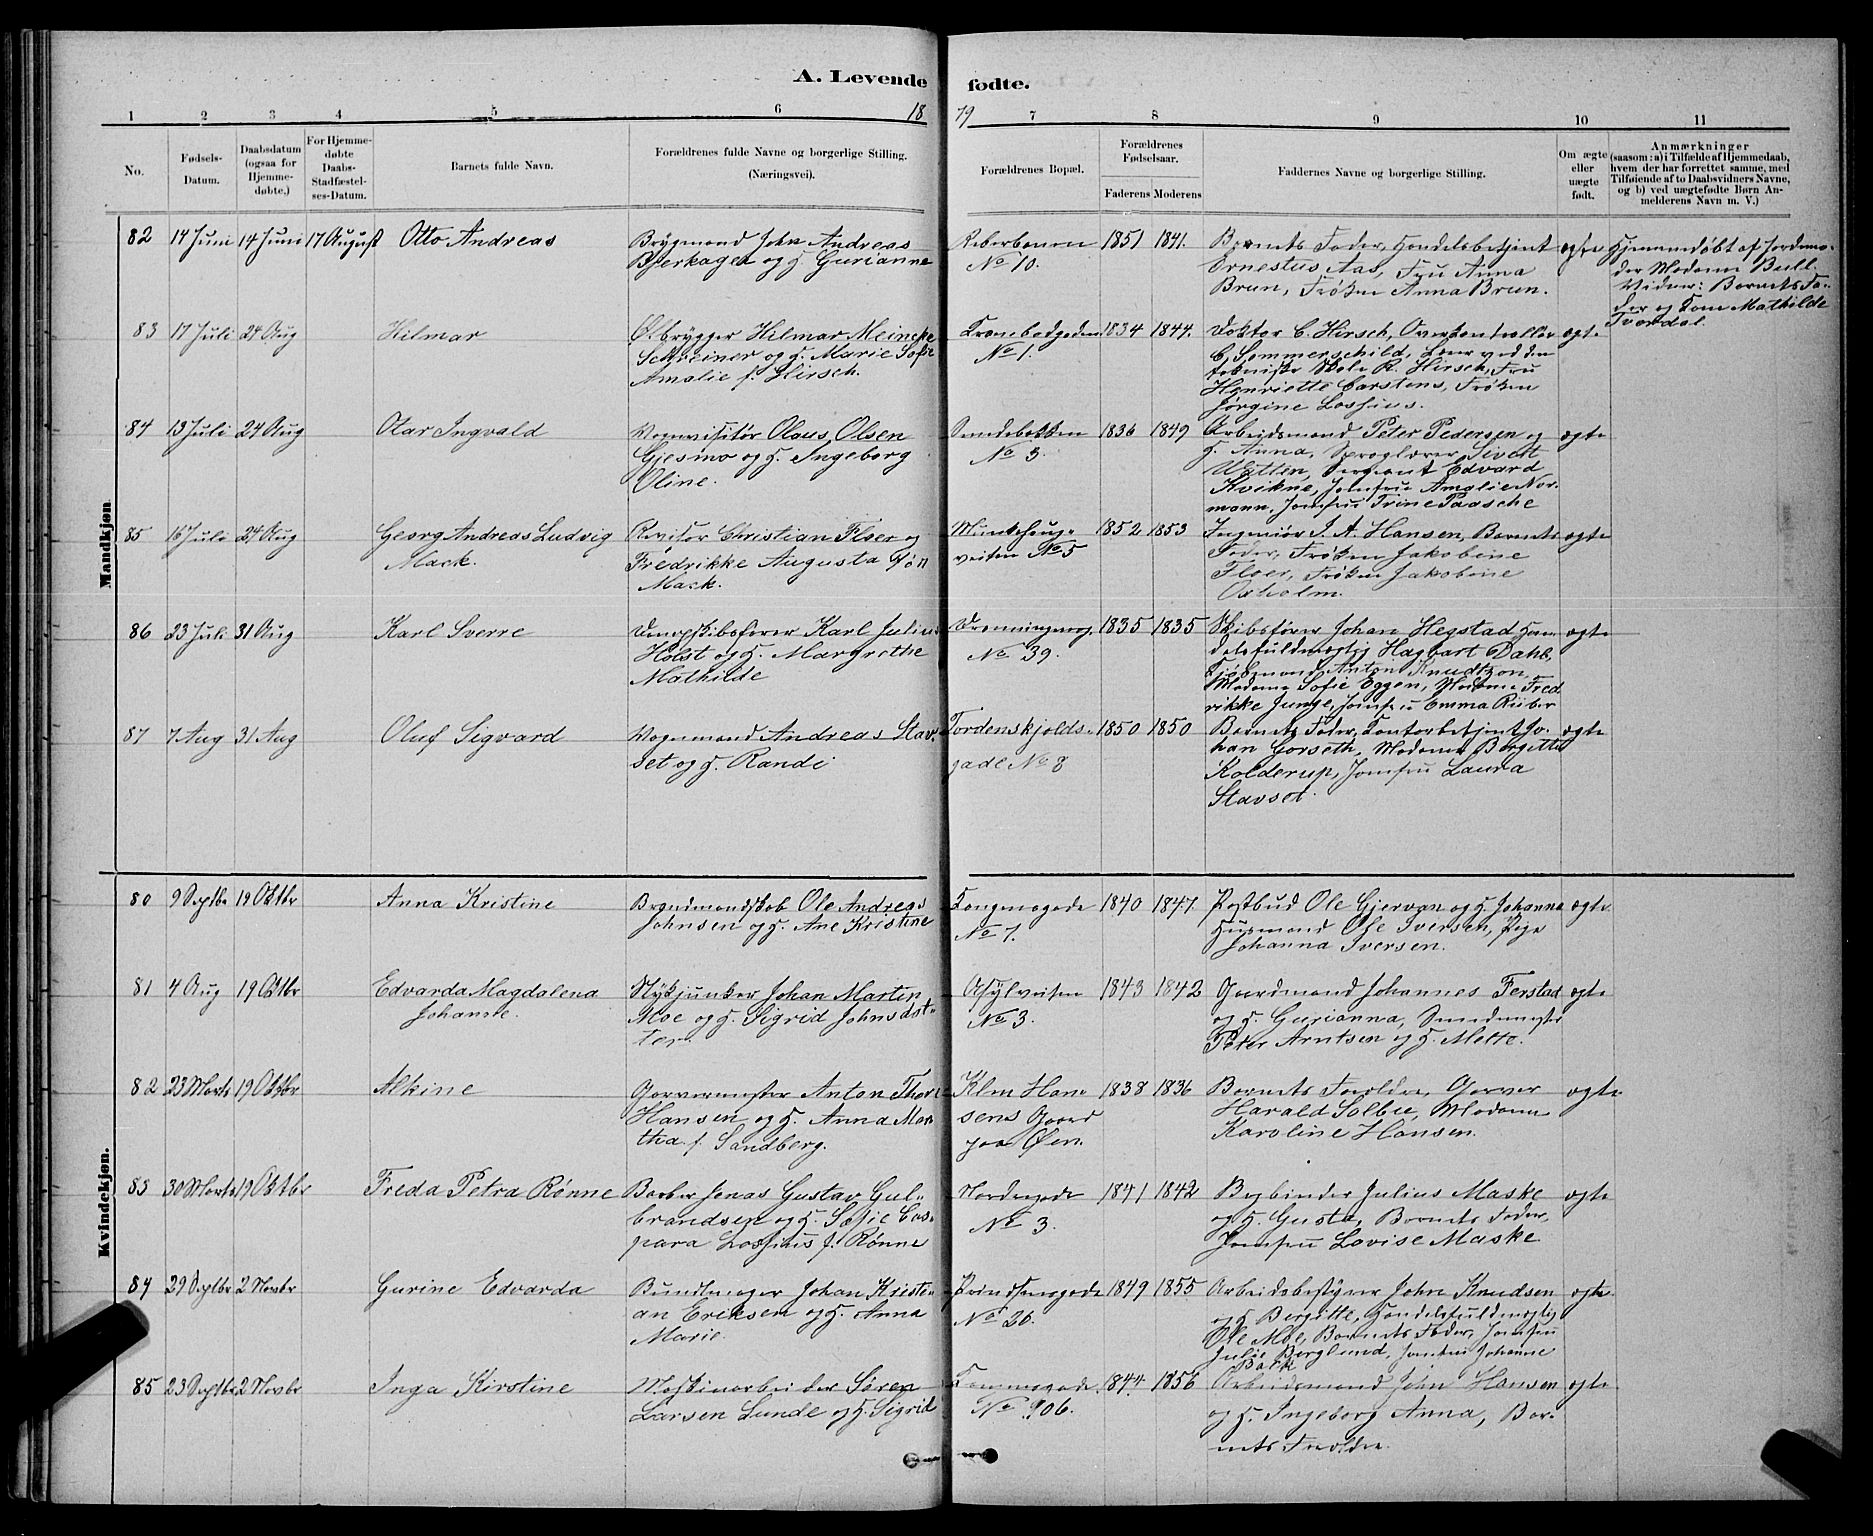 A. Levende fødte.
1 2 3 4 5 6 18 79 7 8 9 10 11
No.
Fødsels-
Datum.
Daabsdatum
(ogsaa for
Hjemme-
døbte.)
For Hjemme-
døbte
Daabs-
Stadfæstel-
ses-Datum.
Barnets fulde Navn.
Forældrenes fulde Navne og borgerlige Stilling.
(Næringsvei).
Forældrenes Bopæl.
Forældrenes
Fødselsaar.
Faderens Moderens
Faddernes Navne og borgerlige Stilling.
Om ægte
eller
uægte
født.
Anmærkninger
(saasom: a) i Tilfælde af Hjemmedaab,
hvem der har forrettet samme, med
Tilføiende af to Daabsvidners Navne,
og b) ved uægtefødte Børn An-
melderens Navn m. V.)
Mandkjøn
82 14 Juni 14 Juni 17 August Otto Andreas
Brygmand John Andreas
Bjerkager og H. Gurianne
Reberbanen
No 10.
1851 1841.
Barnets Fader, Handelsbetjent
Ernestus Aas, Fru Anna
Brun, Frøken Anna Brun.
ægte
Hjemmedøbt af Jordemo-
der Madam Bull.
Vidner: Barnets Fa-
der og Mathilde
Tverdal.
83 17 Juli 24 Aug Hilmar
Ølbrygger Hilmar Meincke
Schreiner og H. Marie Sofie
Amalie f. Hirsch.
No 1.
1834 1844.
Doktor C. Hirsch, Overkontrollør
C. Sommerschild, Lærer ved den
tekniske Skole R. Hirsch, Fru
Henriette Carstens, Frøken
Jørgine Lossius.
ægte
84 13 Juli 24 Aug Olar Ingvald
Vognvisitør Olaus Olsen
Gjesmo og H. Ingeborg
Oline.
Sandbakken
No 3.
1836 1849
Arbeidsmand Peter Pedersen og
H. Anna, Sproglærer Sivert
Watten, Sergeant Edvard
Kvikne, Jomfru Amalie Nor-
mann, Jomfru Trine Paasche
ægte
85 16 Juli 24 Aug Georg Andreas Ludvig
Mack.
Revisor Christian Fløer og
Fredrikke Augusta Røn
Mack.
Munkehaug-
veiten No 5
1852 1853
Ingeniør J. A. Hansen, Barnets
Fader, Frøken Jakobine
Floer, Frøken Jakobine
Oxholm.
ægte
86 23 Juli 31 Aug Karl Sverre
Dampskibsfører Karl Julius
Holst og H. Margrethe
Mathilde
Dronningensg.
No 39.
1835 1835
Skibsfører Johan Hegstad Han-
delsfuldmægtig Hagbart Dahl,
Kjøbmand Anton Knudtzon,
Madame Sofie Eggen, Madame Fred
rikke Junge, Jomfru Emma Riiber
ægte
87 7 Aug 31 Aug Oluf Sigvard
Vognmand Andreas Stav-
set og H. Randi
Tordenskjolds-
gade No 8
1850 1850
Barnets Fader, Kontorbetjent Jo-
han Gorseth, Madam Bergitte
Kolderup, Jomfru Laura
Stavset.
ægte
Kvindekjøn.
80 9 Septbr 19 Oktbr Anna Kristine
Brandmandskab Ole Andreas
Johnsen og H. Ane Kristine
Kongensgade
No 7.
1840 1847.
Postbud Ole Gjervan og H. Johanna
Husmand Ole Iversen, Pige
Johanna Iversen.
ægte
81 4 Aug 19 Oktbr Edvarda Magdalena
Johanne.
Stykjunker Johan Martin
Moe og H. Sigrid Johnsdat-
ter.
Asylveiten
No 3.
1843 1842
Gaardmand Johannes Ferstad
og H. Gurianna,
Peter Arntsen og H. Mette.
ægte
82 23 Marts 19 Oktbr Alkine
Garvermester Anton Thor
Hansen og H. Anna Mar
tha f. Sandberg.
Klm Han-
sens Gaard
paa Øen.
1838 1836
Barnets Forældre, Garver
Harald Solbu, Madam
Karoline Hansen.
ægte
83 30 Marts 19 Oktbr Freda Petra Rønne
Barber Jonas Gustav Gul-
brandsen og H. Sofie Cas-
para Lossius f. Rønne
Nordregade
No 3.
1841 1842
Bogbinder Julius Maske
og H. Gusta, Barnets Fader,
Jomfru Lovise Maske
ægte
84 29 Septbr 2 Novbr Gurine Edvarda
Bundtmager Johan Kristi-
an Eriksen og H. Anna
Marie.
Prindsensgade
No 26.
1849 1855
Arbeidsbestyrer John Knudsen
og H. Bergitte, Handelsfuldmægtig
Ole Moe, Barnets Fader, Jomfru
Julie Berglund, Jomfru Johanne
Bakk
ægte
85 23 Septbr 2 Novbr Inga Kirstine
Maskinarbeider Søren
Larsen Lunde og H. Sigrid
No 906.
1844 1856
Arbeidsmand John Hansen
og H. Ingeborg Anna, Bar-
nets Forældre.
ægte